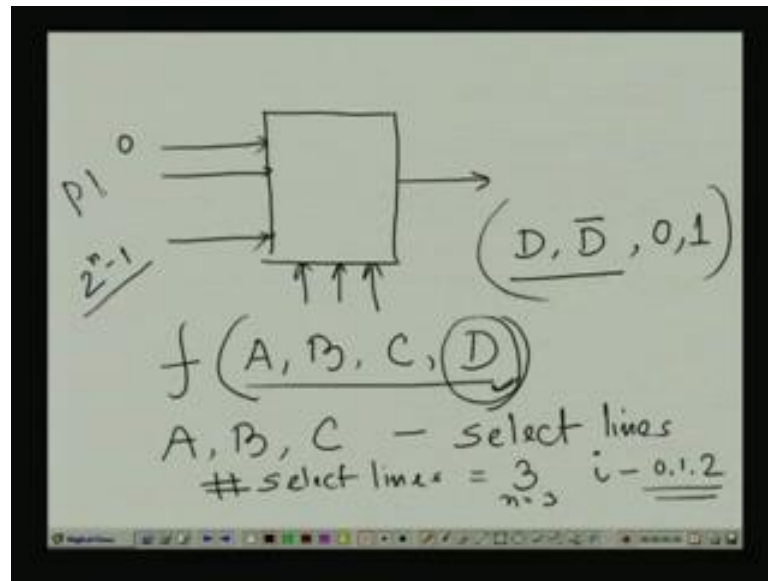 0
PI
2^n-1
(D, D̅, 0,1)
f(A, B, C, D)
A, B, C – select lines
# select lines = 3 i – 0.1.2
n=3